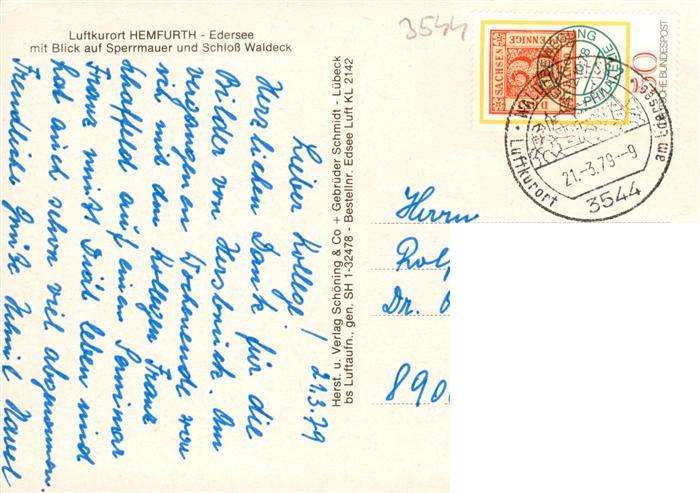 Luftkurort HEMFURTH - Edersee
mit Blick auf Sperrmauer und Schloß Waldeck
21.3.79
Lieber Kollege!
Herzlichen Dank für die
Bilder von Hersbruck. Am
vergangenen Wochenende war
ich mit dem Kollegen Frank
Schaffeld auf einem Seminar
Franz muß Diät leben und
hat auch schon viel abgenommen.
Freundliche Grüße
Herst. u. Verlag Schöning & Co + Gebrüder Schmidt - Lübeck
bs Luftaufn., gen. SH 1-32478 - Bestellnr. Edsee Luft KL 2142
3544
SACHSEN
PFENNIGE
DEUTSCHE BUNDESPOST
Luftkurort
21.-3.79-9
3544
Herrn
Dr.
890